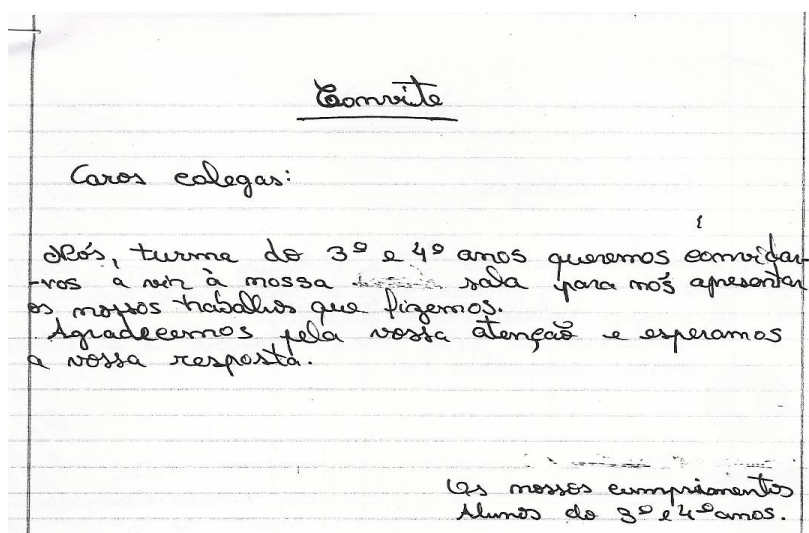 Convite
Caros colegas:
Nós, turma do 3º e 4º anos queremos convidar-
-vos a vir à nossa sala para nós apresentar
os nossos trabalhos que fizemos.
Agradecemos pela vossa atenção e esperamos
a vossa resposta.
Os nossos cumprimentos
Alunos do 3º e 4º anos.